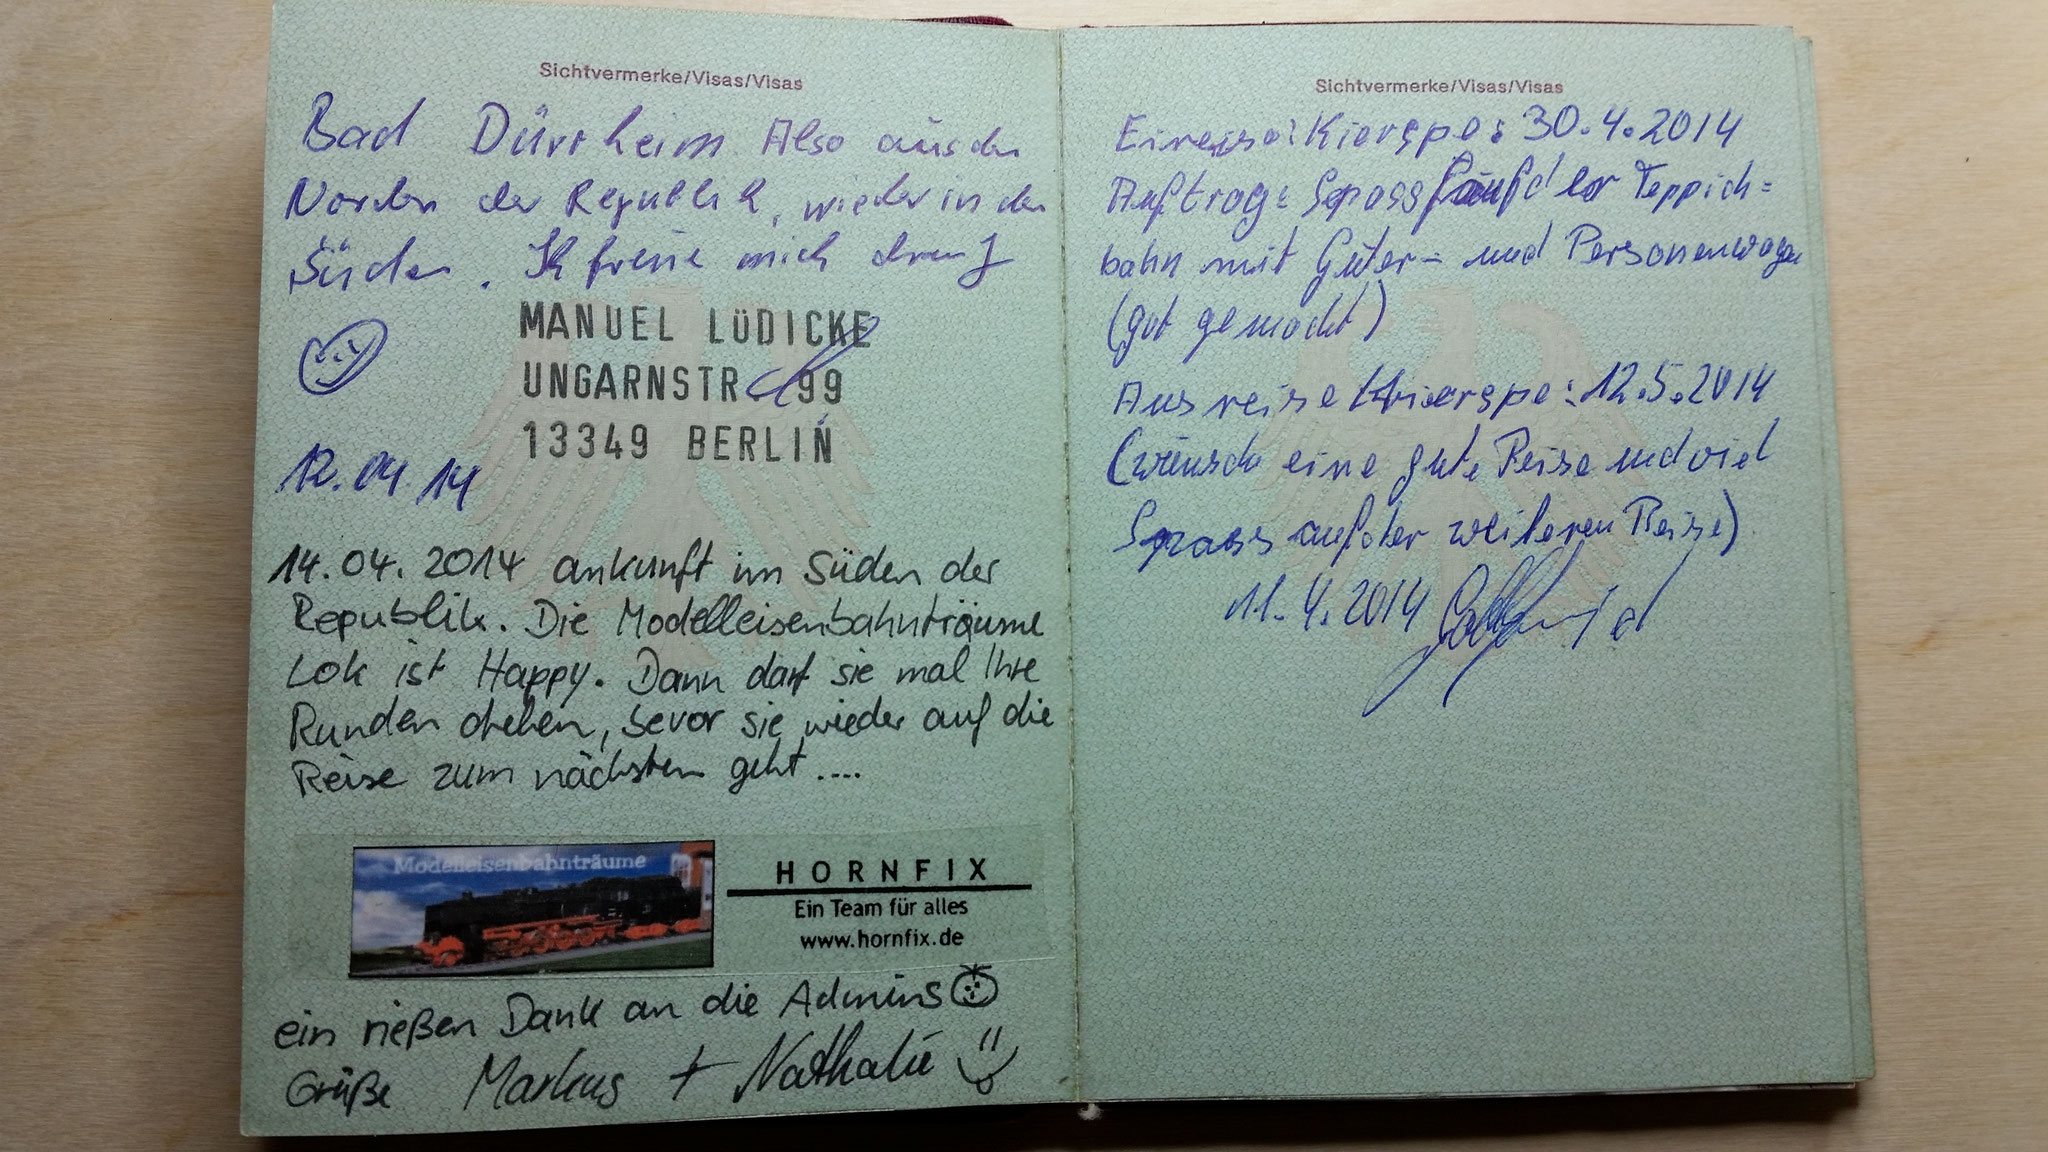 Sichtvermerke/Visas/Visas
Bad Dürrheim Also aus den
Norden der Republik, wieder in den
Süden. Ich freue mich drauf
MANUEL LÜDICKE
UNGARNSTR. 99
13349 BERLIN
12.04.14
14.04.2014 ankunft im Süden der
Republik. Die Modelleisenbahnträume
Lok ist Happy. Dann darf sie mal Ihre
Runden drehen, bevor sie wieder auf die
Reise zum nächsten geht....
Modelleisenbahnträume
HORNFIX
Ein Team für alles
www.hornfix.de
ein rießen Dank an die Admins
Grüße Markus + Nathalie
Sichtvermerke/Visas/Visas
Einreise: Kierspe: 30.4.2014
Auftrag: Spass auf der Teppich=
bahn mit Güter- und Personenwagen
(gut gemacht)
Ausreise Kierspe: 12.5.2014
(wünsche eine gute Reise und viel
Spass auf der weiteren Reise)
11.4.2014